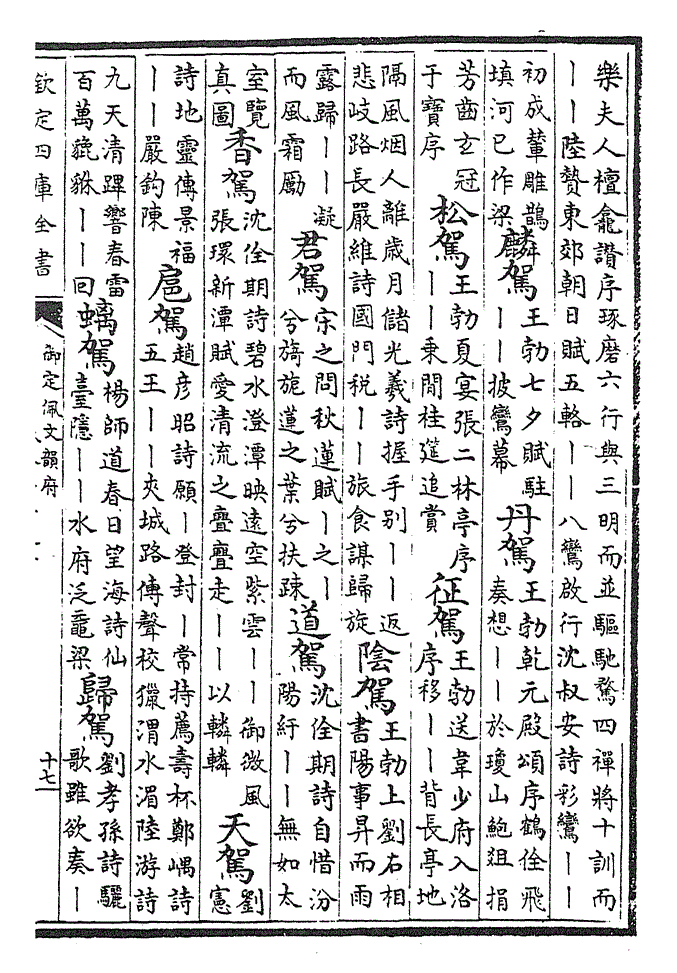 樂夫人檀龕讚序琢磨六行與三明而並驅馳騖四禪將十訓而
——陸贄東郊朝日賦五輅——八鸞啟行沈叔安詩彩鸞——
初成輦雕鵲
填河已作梁
麟駕
王勃七夕賦駐
——披鸞幕
丹駕
王勃乾元殿頌序鶴佺飛
奏想——於瓊山鮑俎捐
芳齒玄冠
于寶序
松駕
王勃夏宴張二林亭序
——乘閒桂筵追賞
征駕
王勃送韋少府入洛
序移——背長亭地
隔風烟人離歲月儲光羲詩握手别——返
悲岐路長嚴維詩國門税——旅食謀歸旋
陰駕
王勃上劉右相
書陽事昇而雨
露歸——凝
而風霜勵
君駕
宋之問秋蓮賦—之—
兮旖旎蓮之葉兮扶踈
道駕
沈佺期詩自惜汾
陽紆——無如太
室覽
真圖
香駕
沈佺期詩碧水澄潭映遠空紫雲——御微風
張環新潭賦愛清流之亹亹走——以轔轔
天駕
劉
憲
詩地靈傳景福
——嚴鈞陳
扈駕
趙彦昭詩願—登封—常持薦壽杯鄭嵎詩
五王——夾城路傳聲校獵渭水湄陸游詩
九天清蹕響春雷
百萬貔貅——回
螭駕
楊師道春日望海詩仙
臺隱——水府泛黿梁
歸駕
劉孝孫詩驪
歌雖欲奏—
欽定四庫全書
御定佩文韻府
十七